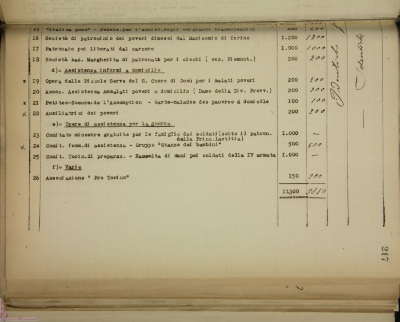 16 Società di patronato dei poveri dimessi dal Manicomio di Torino 1.200
17 Patronato pei liberati dal carcere 1.000
18 Società Reg. Margherita di patronato per i ciechi ( sez. Piemont.) 200 200
d)= Assistenza infermi a domicilio
x 19 Opera delle Piccole Serve del S. Cuore di Gesù per i malati poveri 200 200
20 Assoc. Assistenza Ammalati poveri a domicilio ( Dame della Div. Provv.) 200 200
x 21 Petites-Soeurs-de l'Assomption - Garde-Malades des pauvres à domicile 100 100
x 22 Ausiliatrici dei poveri 200 200
e)= Opere di Assistenza per la guerra
23 Comitato minestre gratuite per le famiglie dei soldati(sotto il patron. della Princ. Laetitia) 1.000 —
x 24 Comit. femm.di assistenza - Gruppo "Stanze dei bambini" 500 500
25 Comit. Torin.di preparaz. - Raccolta di doni pei soldati della IV armata 1.000 —
f)= Varie
26 Associazione " Pro Torino" 150
11300
217